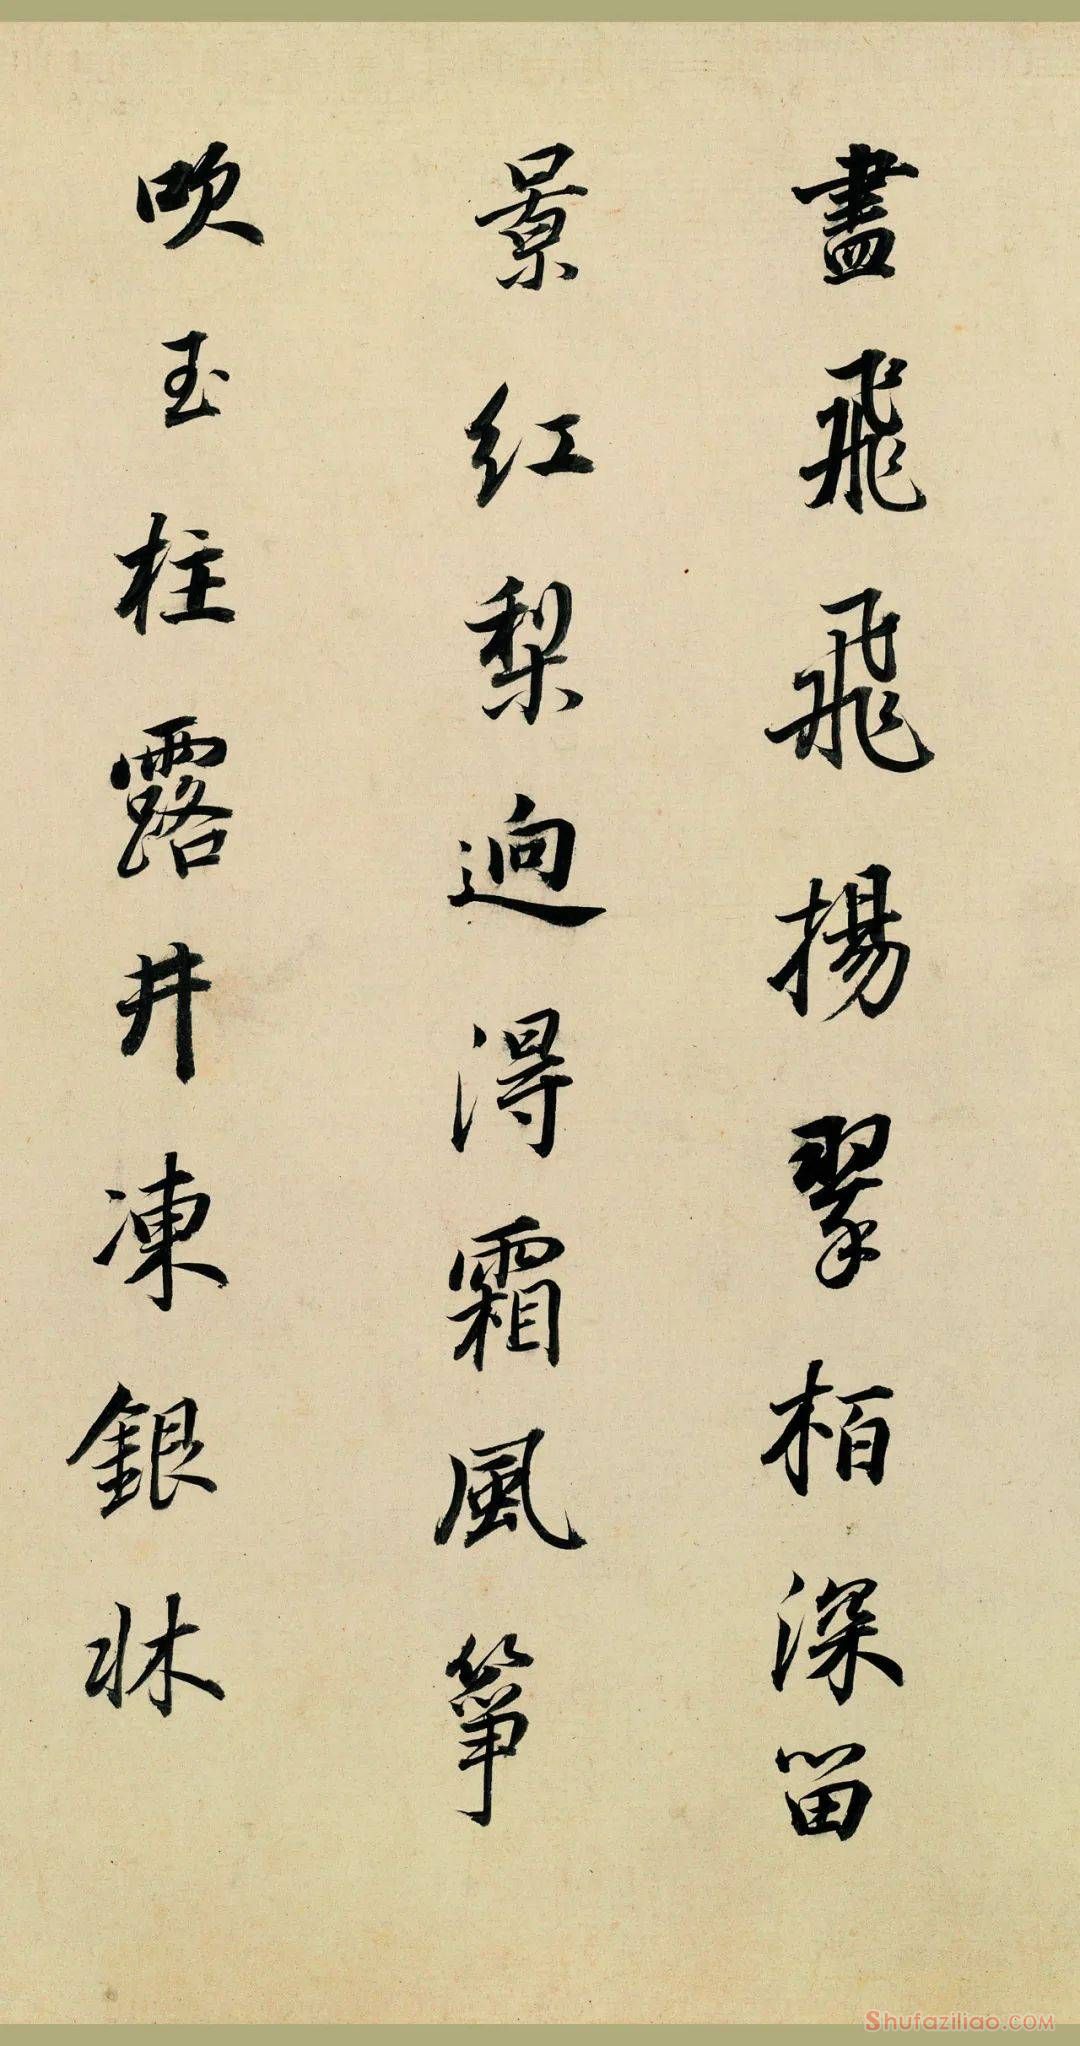 盡飛飛揚翠栢深留
景红梨逈淂霜風筝
吹玉柱露井凍銀牀
Shufaziliao.COM